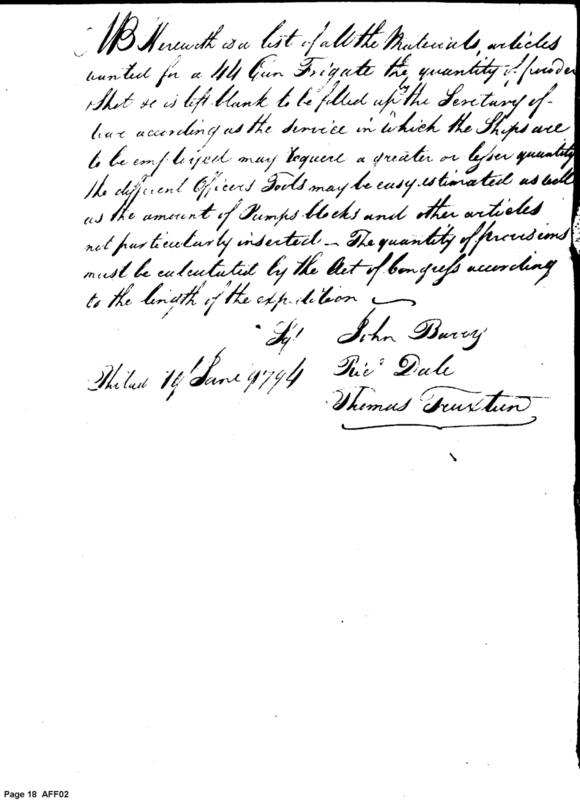 NB Herewith is a list of all the Materials, articles
wanted for a 44 Gun Frigate the quantity of powder
Shot &c is left blank to be filled up by the Secretary of
War according as the service in which the Ships are
to be employed may require a greater or lesser quantity
the different Officers Tools may be easy estimated as well
as the amount of Pumps blocks and other articles
not particularly inserted — The quantity of provisions
must be calculated by the Act of Congress according
to the length of the expedition
Sgd John Barry
Philad 19 June 1794 Ricd Dale
Thomas Truxtun
Page 18 AFF02